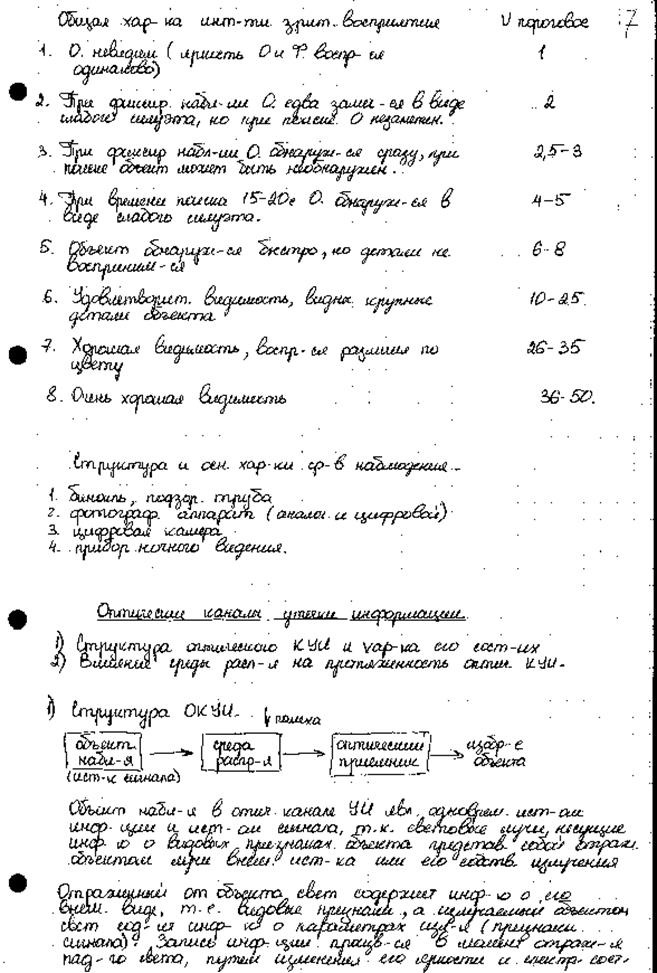 Общая хар-ка инт-ти зрит. восприятия V пороговое 7
1. О. невидим (яркость О и Ф. воспр-ся 1
одинаково)
2. При фиксир. набл-ии О. едва заме-ся в виде 2
слабого силуэта, но при поиске О незаметен.
3. При фиксир набл-ии О. обнаруж-ся сразу, при 2,5-3
поиске объект может быть необнаружен.
4. При времени поиска 15-20с О. обнаруж-ся в 4-5
виде слабого силуэта.
5. Объект обнаруж-ся быстро, но детали не 6-8
воспринима-ся
6. Удовлетворит. видимость, видны крупные 10-25.
детали объекта
7. Хорошая видимость, воспр-ся различия по 26-35
цвету
8. Очень хорошая видимость 36-50.
Структура и осн. хар-ки ср-в наблюдения
1. бинокль, подзор. труба
2. фотограф. аппарат (аналог. и цифровой)
3. цифровая камера
4. прибор ночного видения.
Оптические каналы утечки информации.
1) Структура оптического КУИ и хар-ка его сост-их
2) Влияние среды расп-я на протяженность оптич. КУИ.
1) Структура ОКУИ. помеха
объект набл-я среда распр-я оптический приемник изобр-е объекта
(ист-к сигнала)
Объект набл-я в оптич. канале УИ явл. одноврем. ист-ом
инф-ции и ист-ом сигнала, т.к. световые лучи, несущие
инф-ю о видовых признаках объекта представ. собой отраж.
объектом лучи внеш. ист-ка или его собств. излучения
Отраженный от объекта свет содержит инф-ю о его
внеш. виде, т.е. видовые признаки, а излучаемый объектом
свет сод-ит инф-ю о параметрах изл-я (признаки
сигнала). Запись инф-ции произв-ся в момент отраже-я
пад-го света, путем изменения его яркости и спектр. сост.